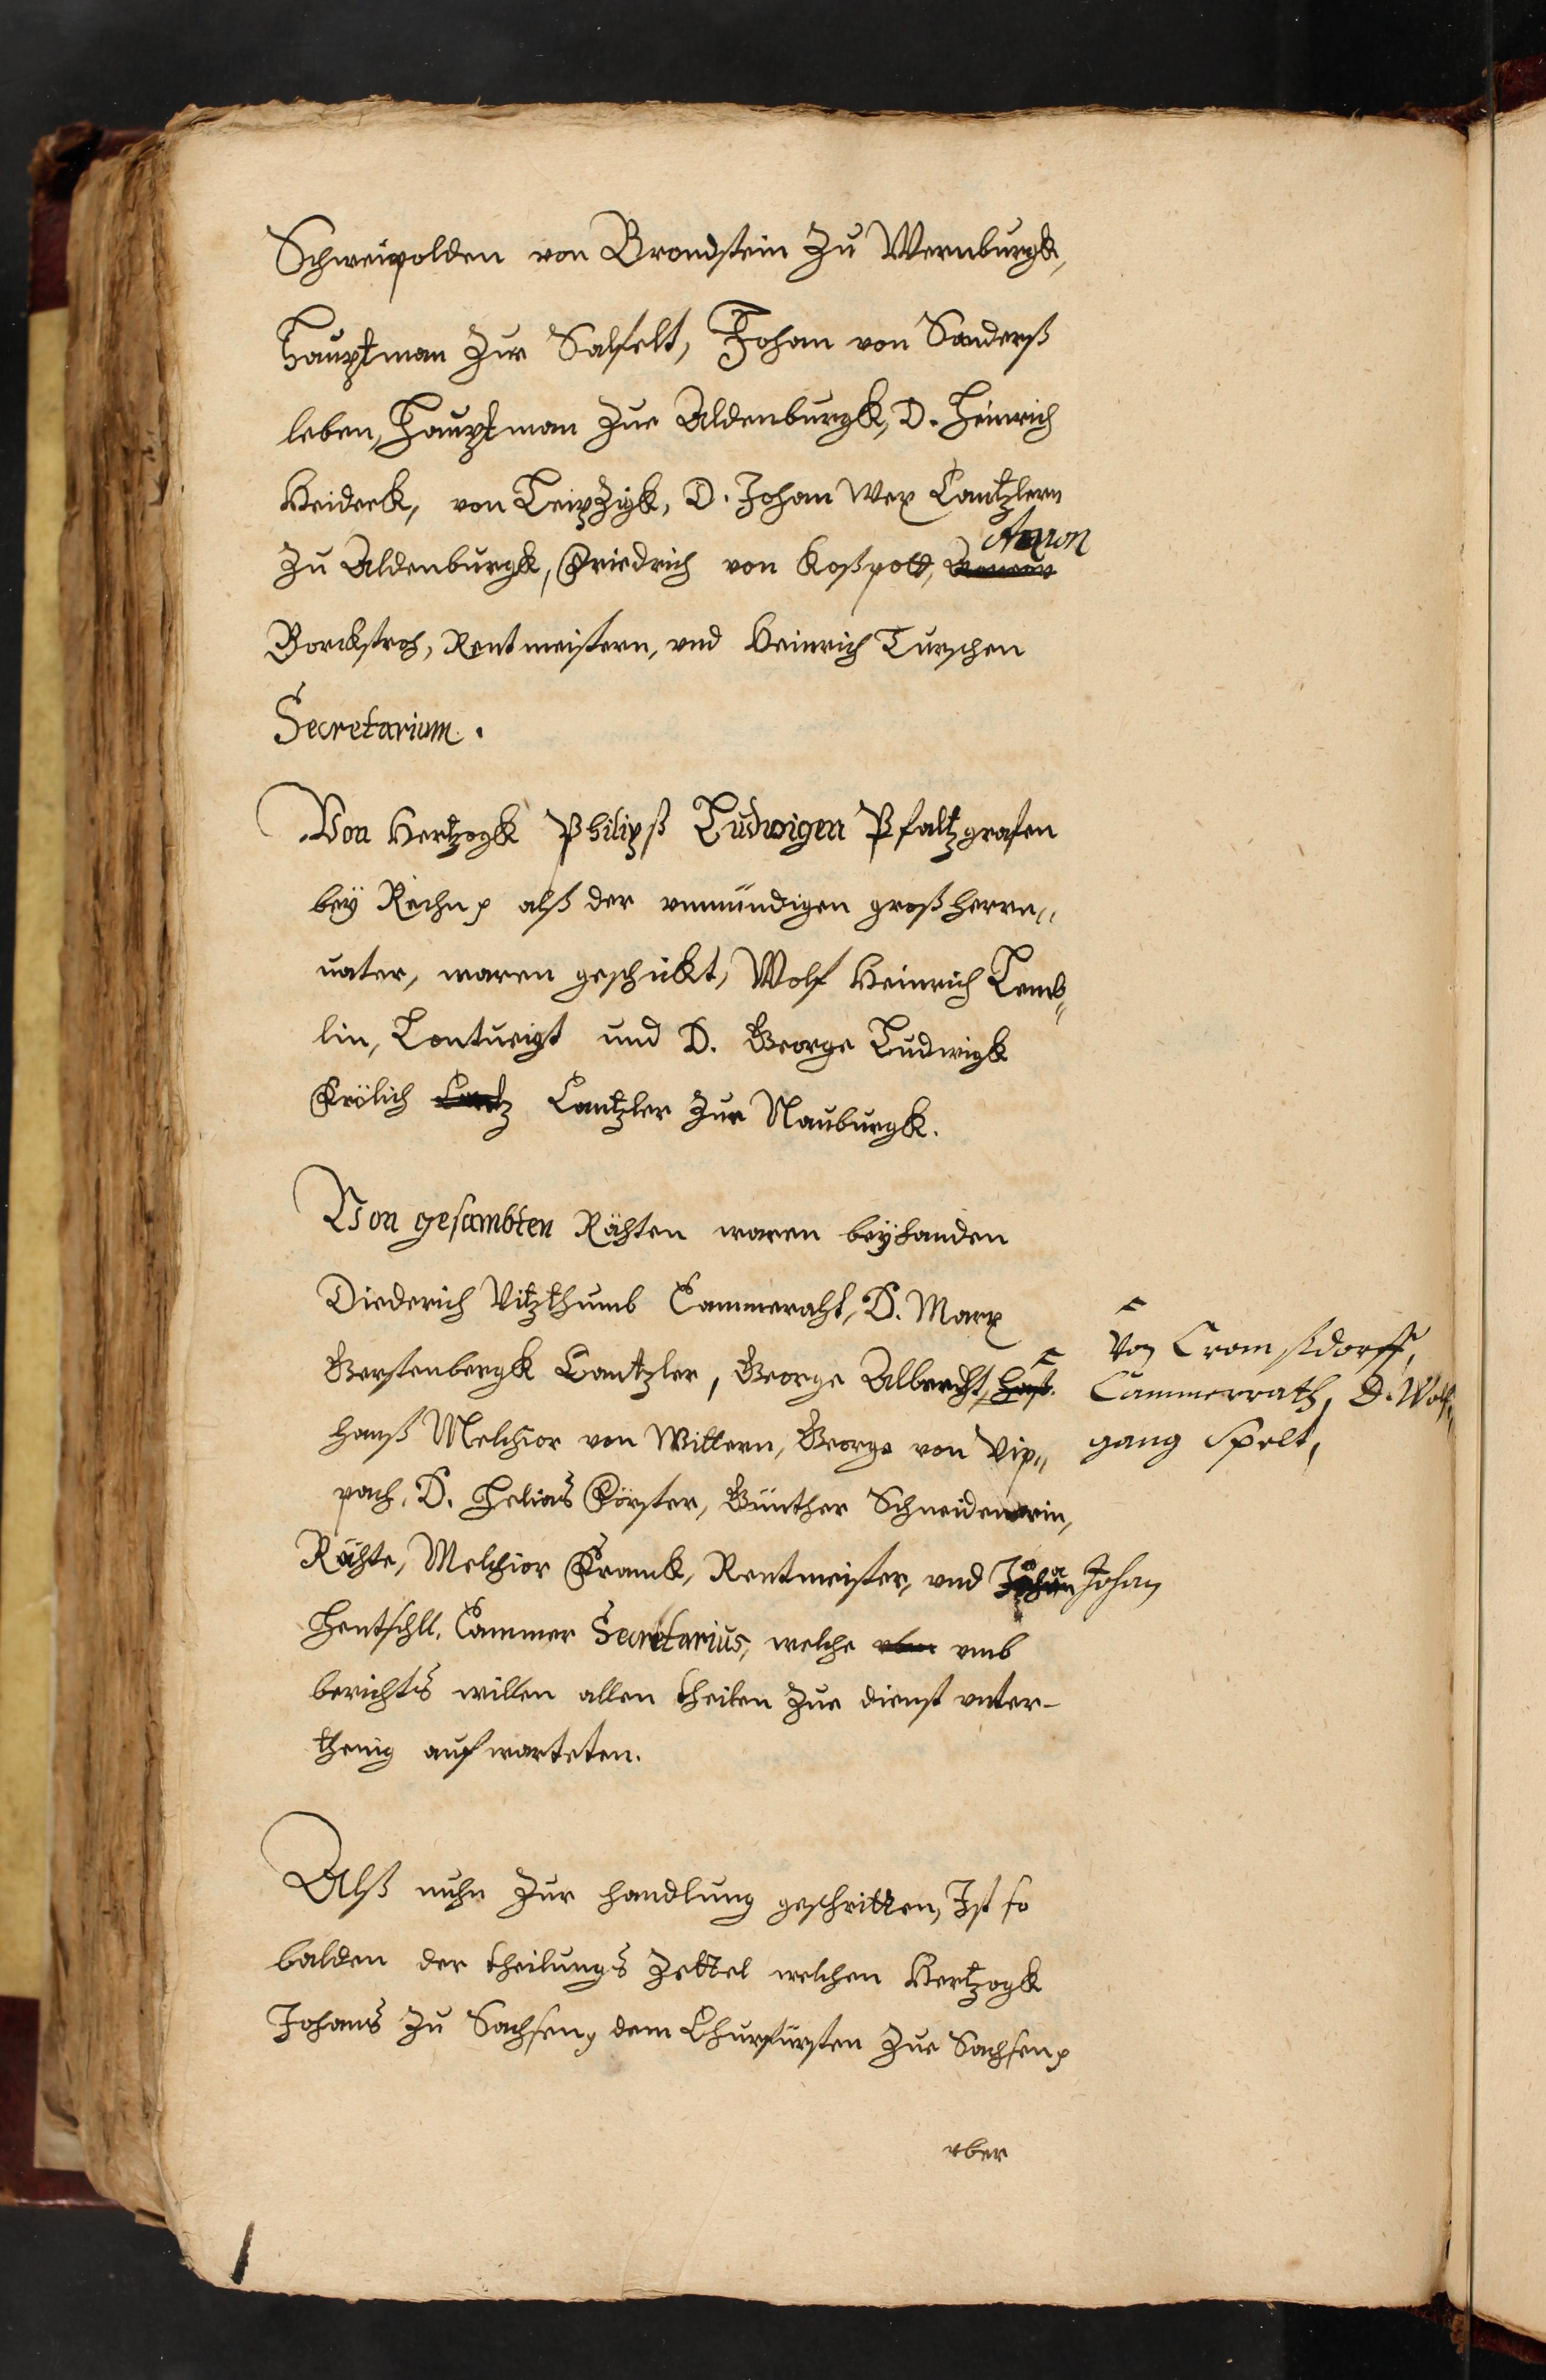 Schweipolden von Brondstein Zu Wernburgk,
Hauptman Zur Salfelt, Johan von Sanderß
leben, Hauptman Zue Aldenburgk, D. Heinrich
Heideck, von LeipZigk, D. Johan Wex Cantzlern
Anron
Zu Aldenburgk, Friedrich von Koßpott,
Borckstroh, Rentmeistern, vnd Heinrich Turschen
Secretarium.
Von Hertzogk Philipß Ludwigen Pfaltzgrafen
beÿ Rhein alß der vnmündigen großherrn„
uater, waren geschickt, Wolf Heinrich Lemb„
lin, und D. George Ludwigk
Frölich Cantz Cantzler Zur Nauburgk.
Von gesambten Rähten waren beÿhanden
Diederich Vitzthumb Cammeraht, D. Marx
Gerstenbergk Cantzler, George Albrecht,
von Cromßdorff,
Cammerrath, D. Wolf„
gang Spelt,
hanß Melchior von Wittern, George von Vip„
pach, D. Helias Förster, Günther Schneidewein,
Rähte, Melchior Franck, Rentmeister, vnd Johan Johan
Hentschll, Cammer Secretarius, welche vmb
berichts willen allen theilen Zue dienst vnter-
thenig aufwarteten.
Alß nuhn Zur handlung geschritten, Ist so
balden der theilungs Zettel welchen Hertzogk
Johans Zu Sachsen, dem Churfürsten Zue Sachsen
vber